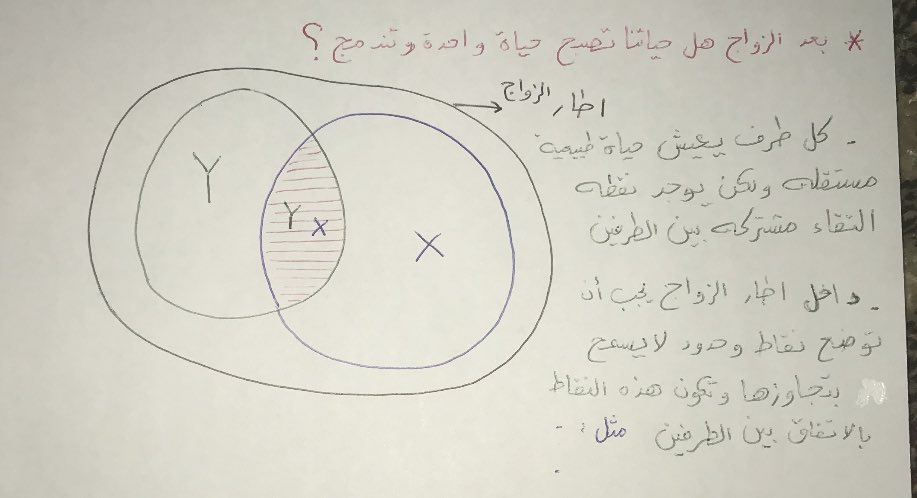 * بعد الزواج هل حياتنا تصبح حياة واحدة وتندمج ؟
اطار الزواج
. كل طرف يعيش حياة طبيعية
مستقله ولكن يوجد نقطه
التقاء مشتركه بين الطرفين
. داخل اطار الزواج يجب أن
توضح نقاط وحدود لا يسمح
بتجاوزها وتكون هذه النقاط
بالاتفاق بين الطرفين مثل :-
.
Y
Y X
X